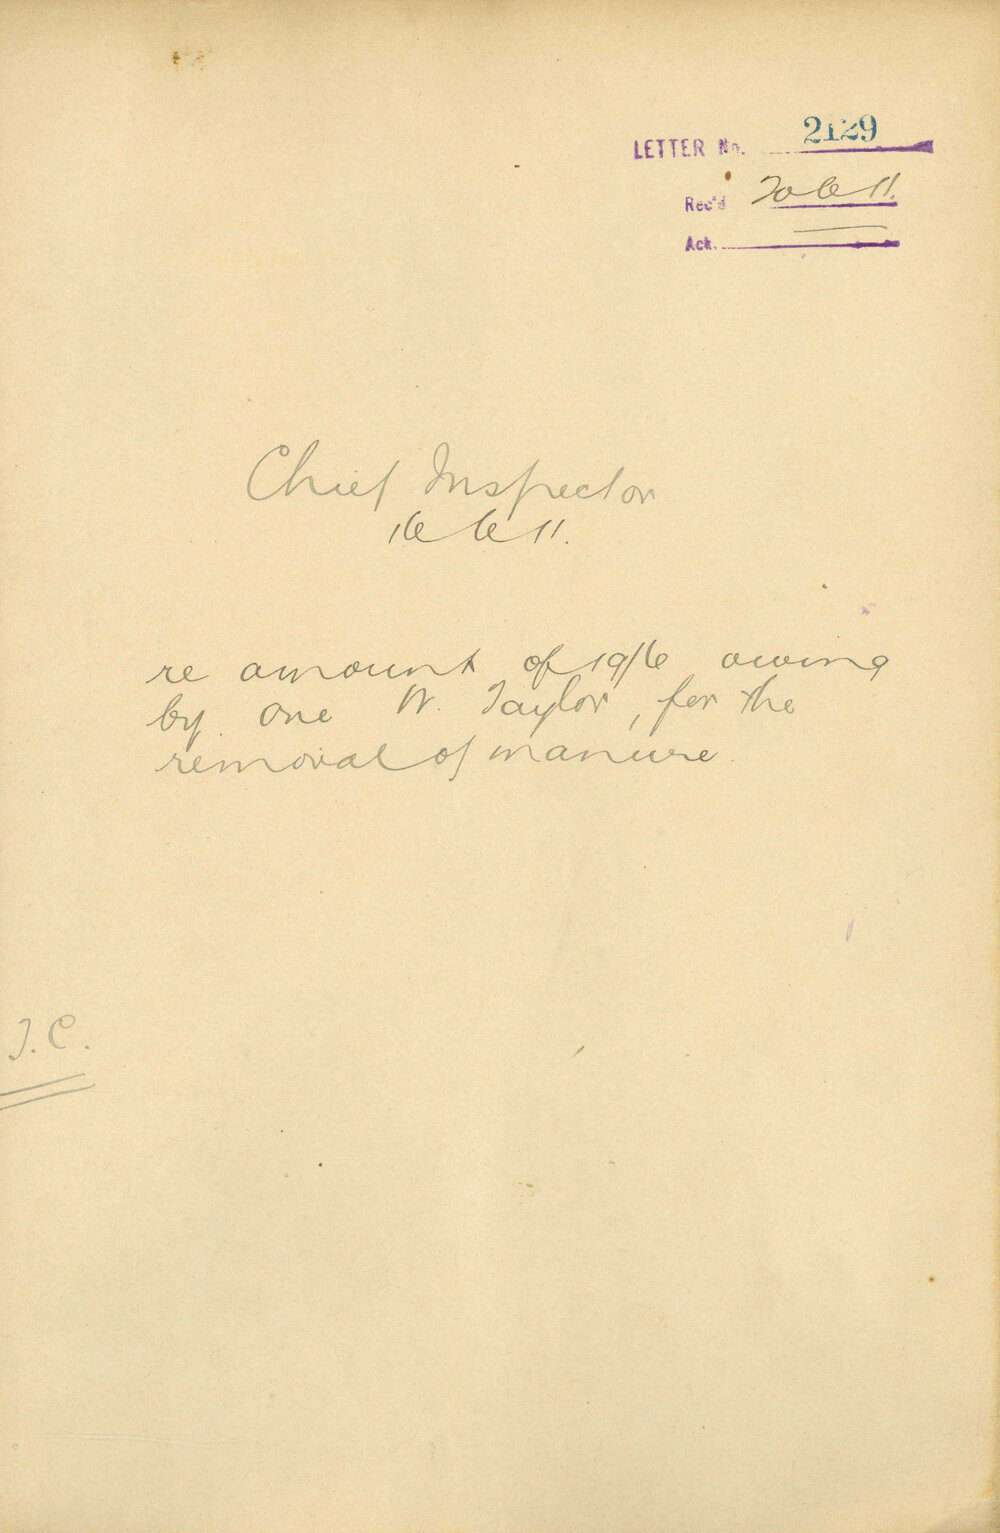 LETTER No. 2129
Rec'd 20 6 11.
Ack.
Chief Inspector
16 6 11.
re amount of 19/6 owing
by one W. Taylor, for the
removal of manure
T.C.